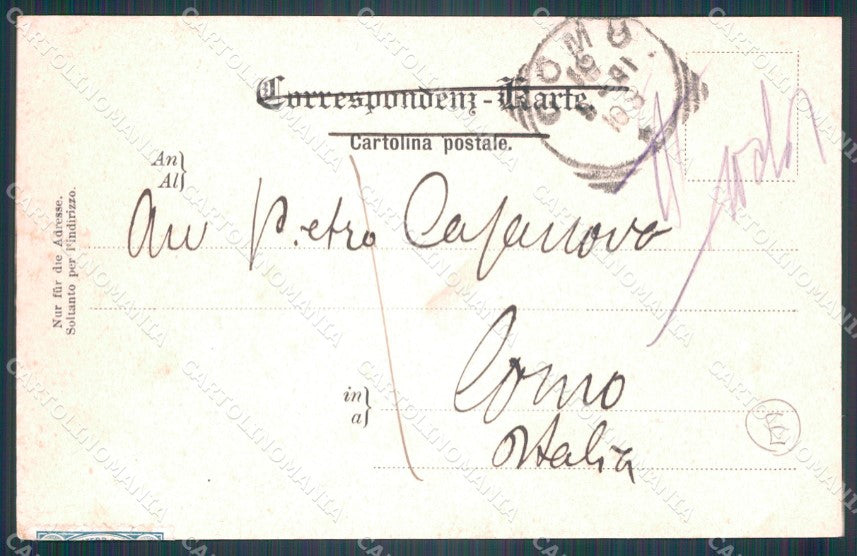 COMO
Correspondenz-Karte.
Cartolina postale.
An
Al
Avv Pietro Casanova
in
a
Como
Italia
Nur für die Adresse.
Soltanto per l'indirizzo.
CARTOLINOMANIA